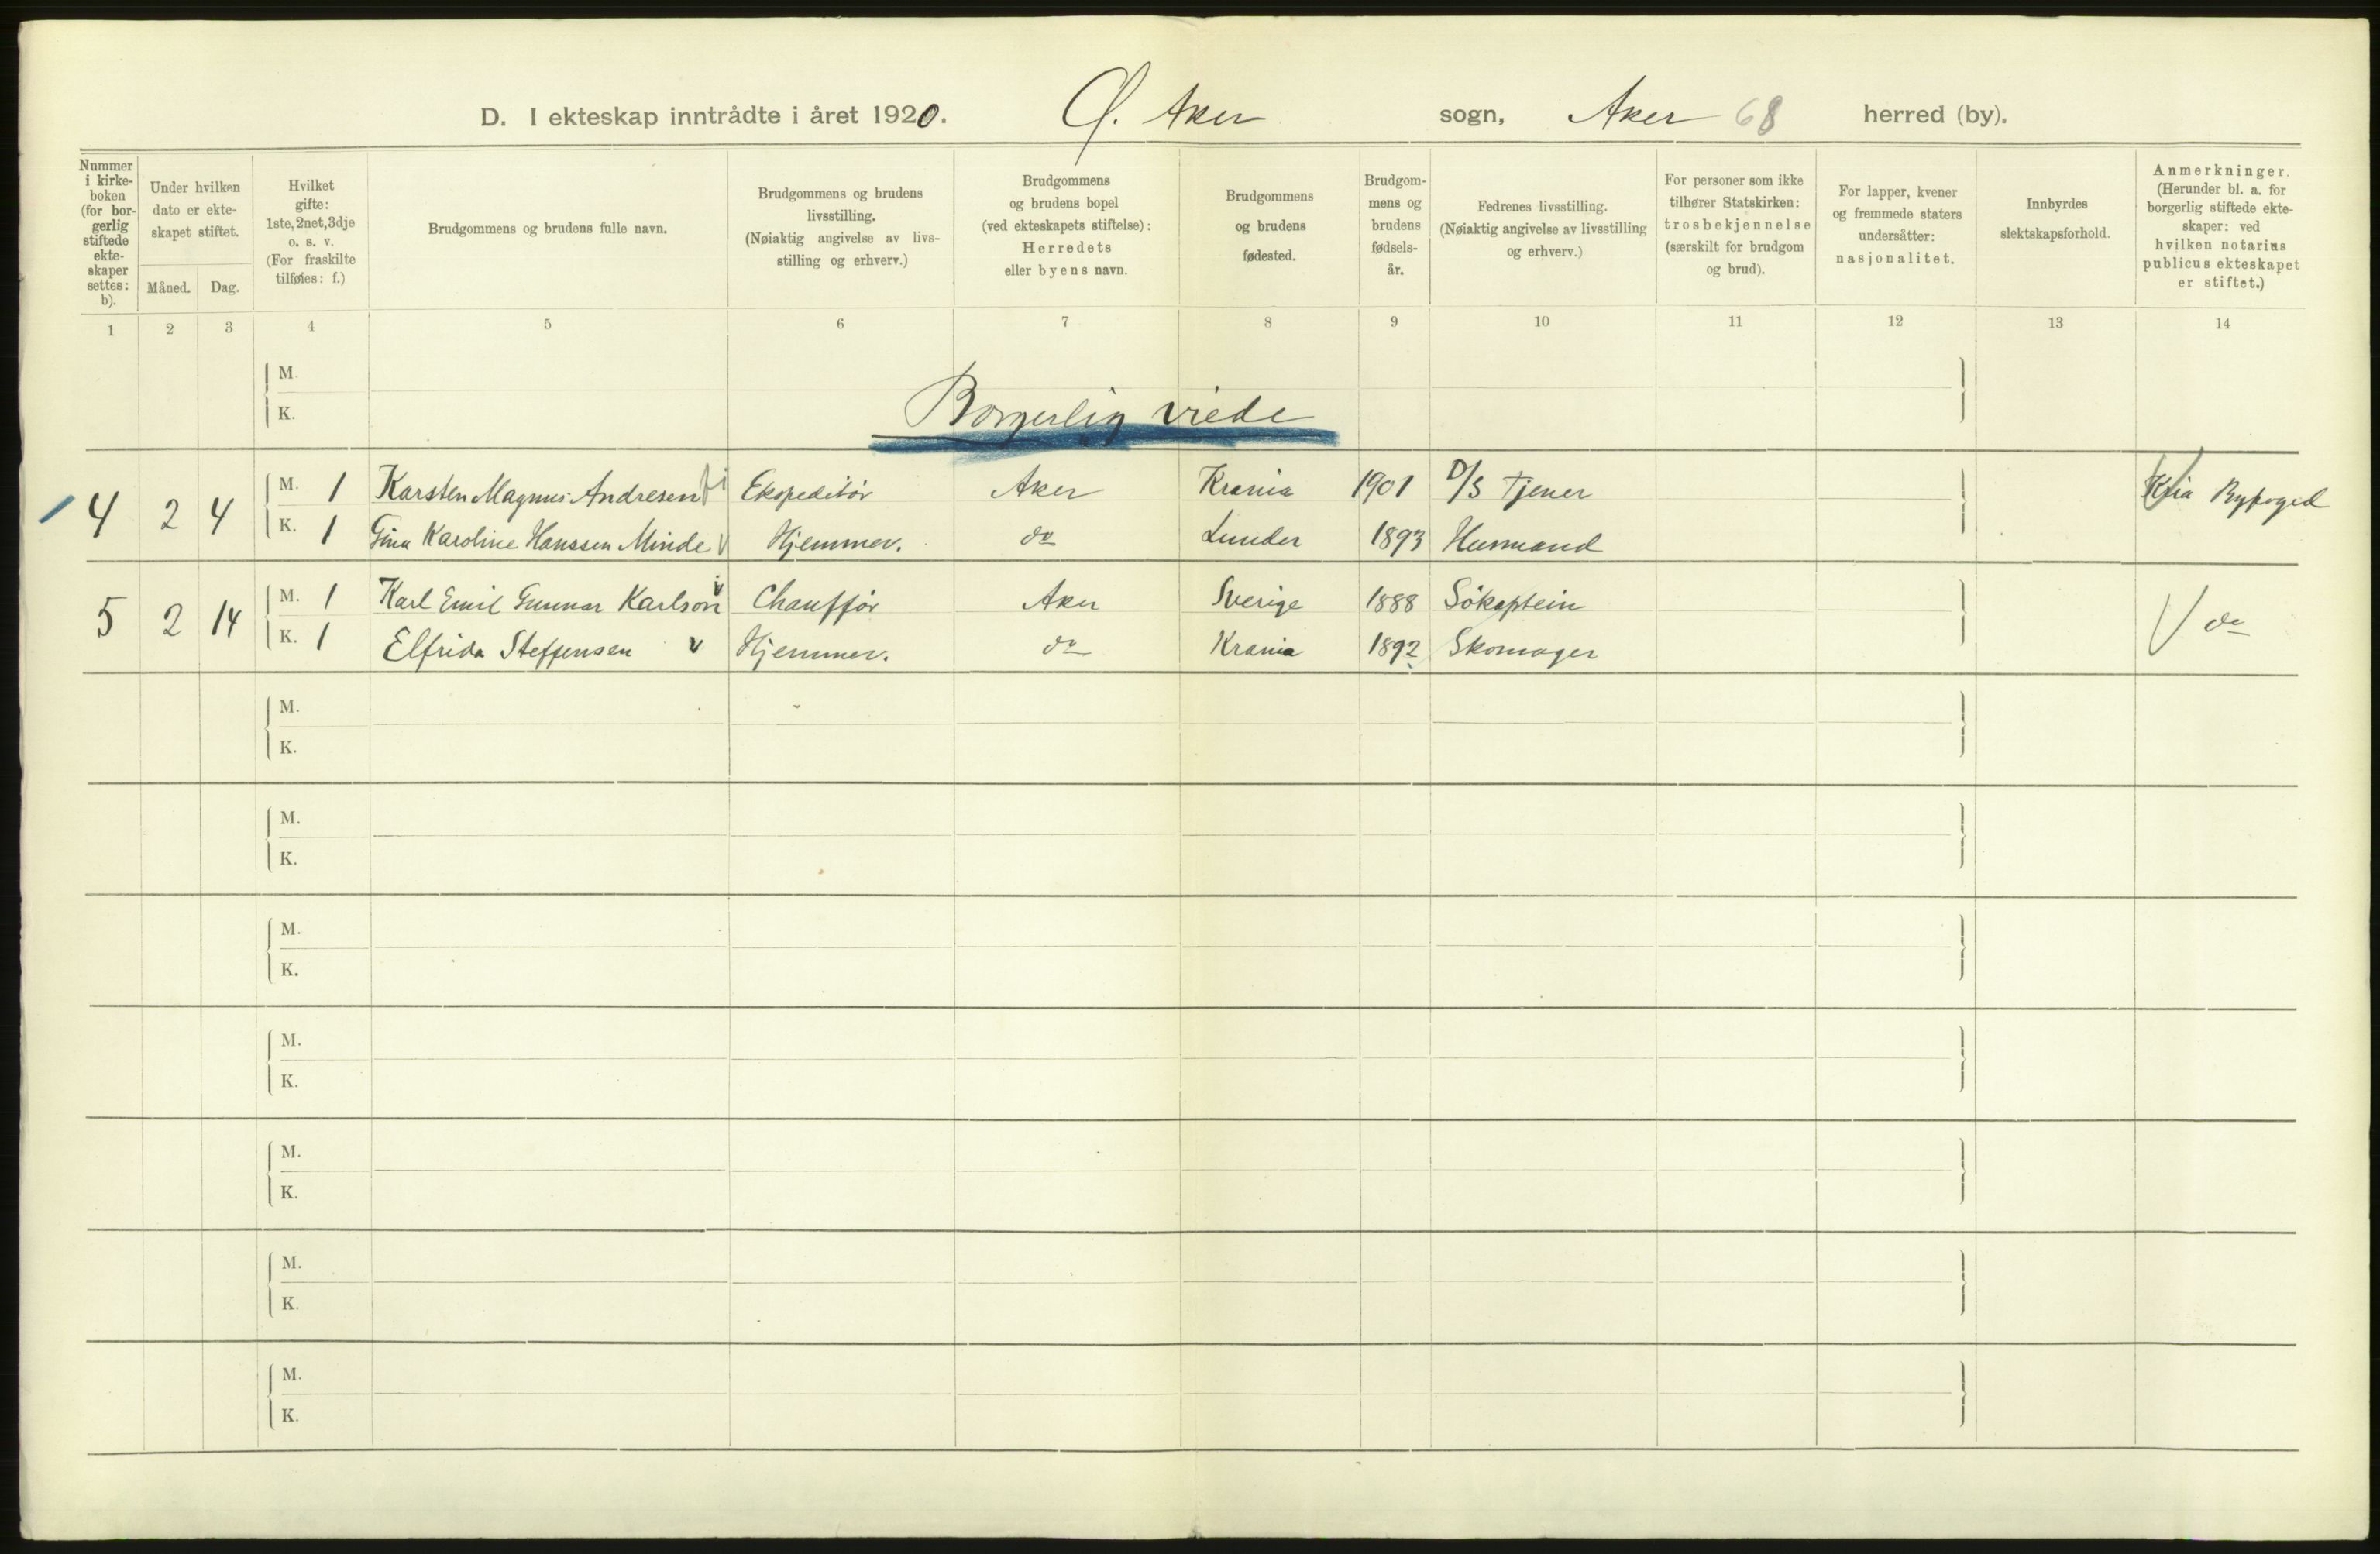 D. I ekteskap inntrådte i året 1920. Ø. Aker sogn, Aker 68 herred (by).
Nummer i kirke-boken (for bor-gerlig stiftede ekte-skaper settes: b).
Under hvilken dato er ekte-skapet stiftet.
Måned. Dag.
Hvilket gifte: 1ste, 2net, 3dje o. s. v. (For fraskilte tilføies: f.)
Brudgommens og brudens fulle navn.
Brudgommens og brudens livsstilling. (Nøiaktig angivelse av livs-stilling og erhverv.)
Brudgommens og brudens bopel (ved ekteskapets stiftelse): Herredets eller byens navn.
Brudgommens og brudens fødested.
Brudgom-mens og brudens fødsels-år.
Fedrenes livsstilling. (Nøiaktig angivelse av livsstilling og erhverv.)
For personer som ikke tilhører Statskirken: trosbekjennelse (særskilt for brudgom og brud).
For lapper, kvener og fremmede staters undersåtter: nasjonalitet.
Innbyrdes slektskapsforhold.
Anmerkninger. (Herunder bl. a. for borgerlig stiftede ekte-skaper: ved hvilken notarius publicus ekteskapet er stiftet.)
1 2 3 4 5 6 7 8 9 10 11 12 13 14
M.
K.
Borgerlig viede
4 2 4 M. 1 Karsten Magnus Andresen Ekspeditør Aker Krania 1901 D/S Tjener Kria Byfoged
K. 1 Gina Karoline Hanssen Minde Hjemmev. do Lunder 1893 Husmand
5 2 14 M. 1 Karl Emil Gunnar Karlson Chauffør Aker Sverige 1888 Sökaptein do
K. 1 Elfrida Steffensen Hjemmev. do Krania 1892 Skomager
M.
K.
M.
K.
M.
K.
M.
K.
M.
K.
M.
K.
M.
K.